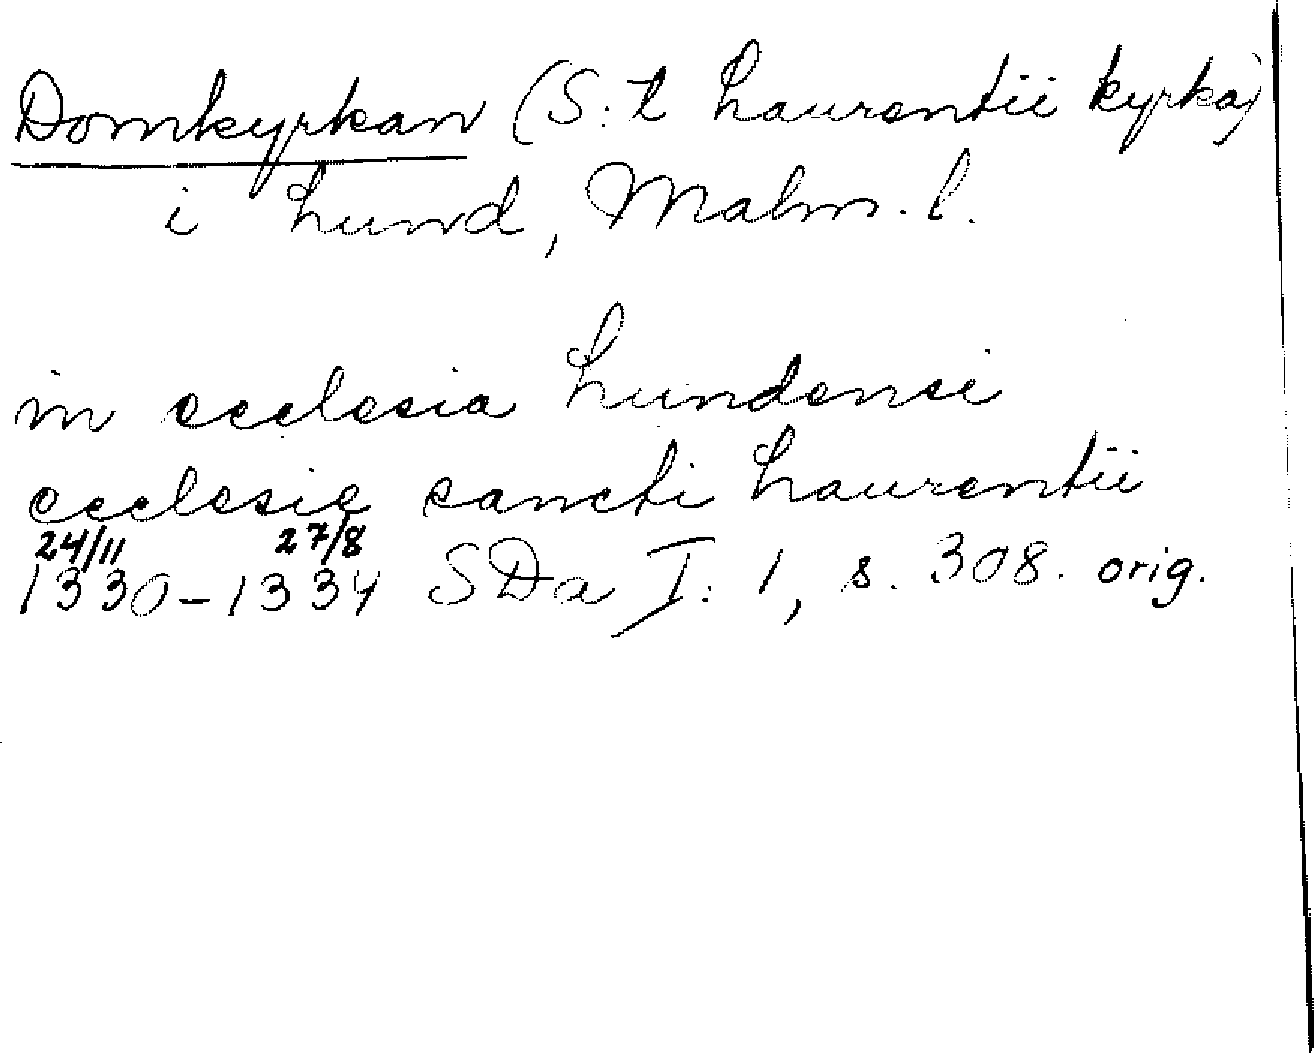 Domkyrkan (S:t Laurentii kyrka)
i Lund, Malm. l.
in ecclesia Lundensi
ecclesie sancti Laurentii
24/11 27/8
1330-1334 SDa I: 1, s. 308. orig.